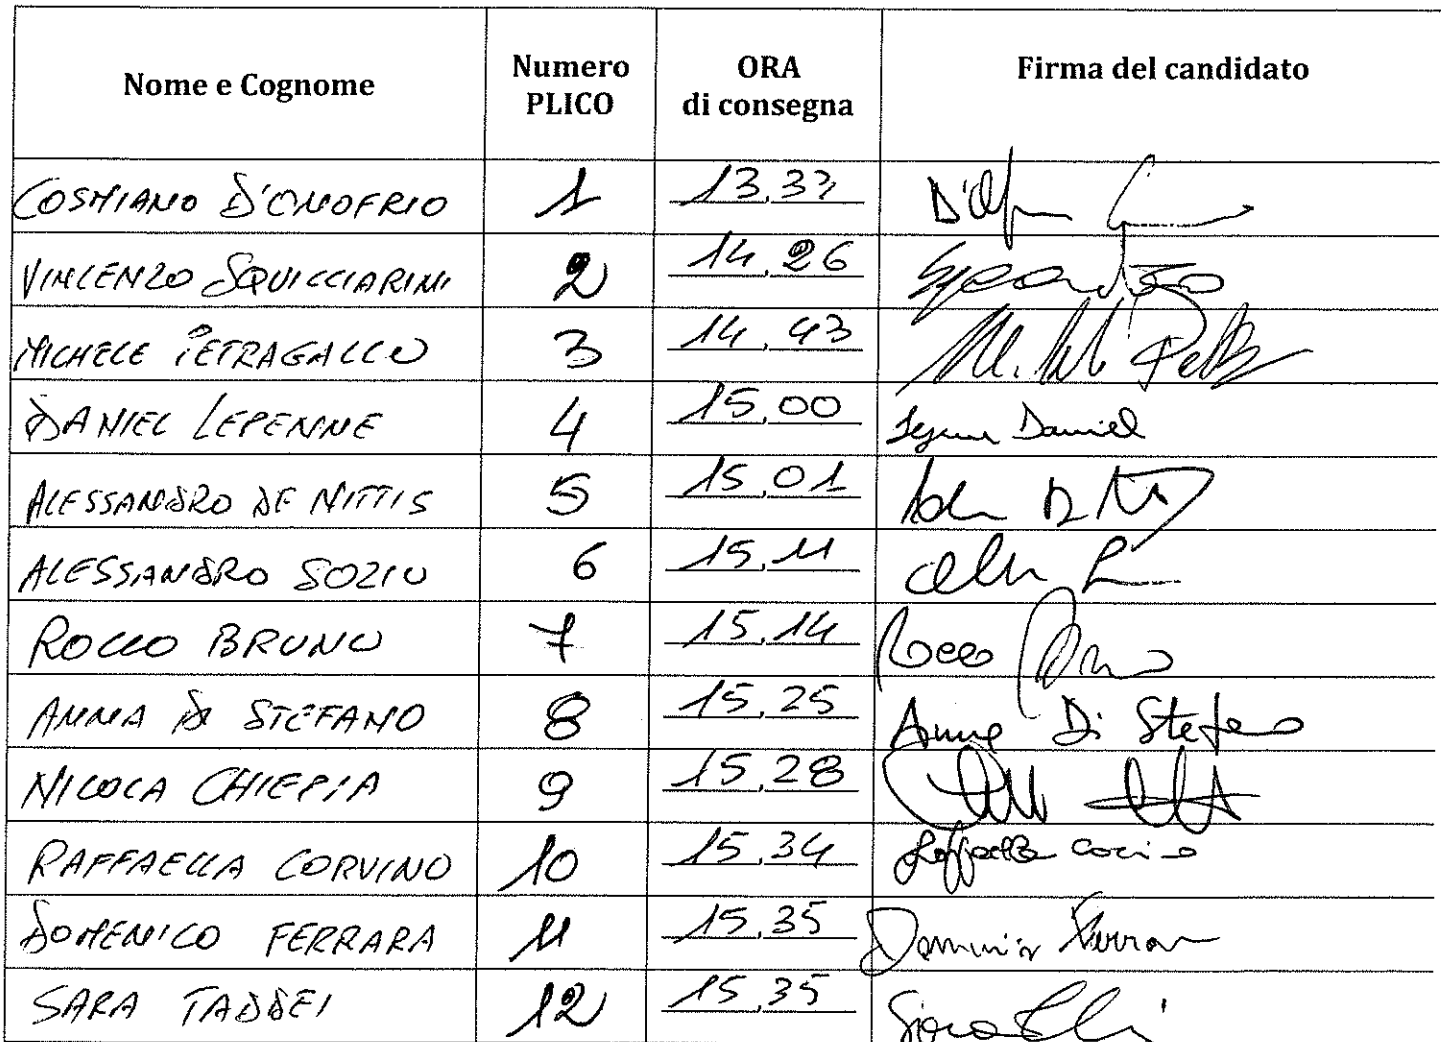 Nome e Cognome Numero PLICO ORA di consegna Firma del candidato
COSMIANO D'ONOFRIO 1 13,33
VINCENZO SQUICCIARINI 2 14,26
MICHELE PETRAGALLO 3 14,43
DANIEL LEPENNE 4 15,00 Daniel
ALESSANDRO DE NITTIS 5 15,01
ALESSANDRO SOZIO 6 15,11
ROCCO BRUNO 7 15,14 Rocco Bruno
ANNA DI STEFANO 8 15,25 Anna Di Stefano
NICOLA CHIEPPA 9 15,28
RAFFAELLA CORVINO 10 15,34 Raffaella Corvino
DOMENICO FERRARA 11 15,35 Domenico Ferrara
SARA TADDEI 12 15,35